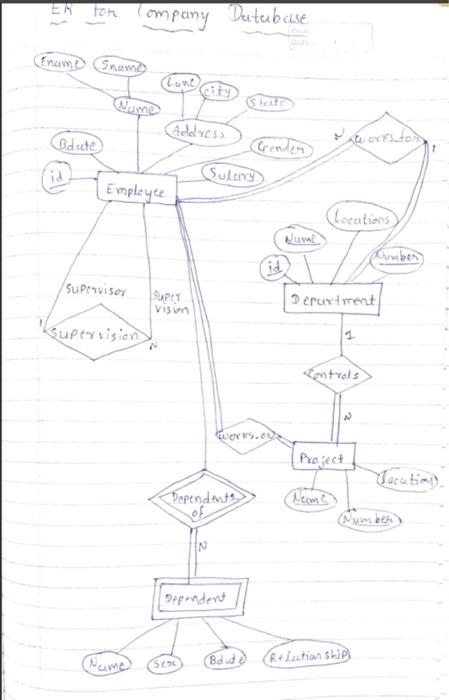 ER for Company Database
Ename
Sname
Name
Lane
City
State
Address
Bdate
Gender
Salary
id
Employee
N
works_for
1
Locations
Name
Number
id
Department
Supervisor
Super
vision
1
Supervision
N
1
Controls
N
works-on
Project
Location
Name
Number
Dependents
of
N
Dependent
Name
Sex
Bdate
Relationship